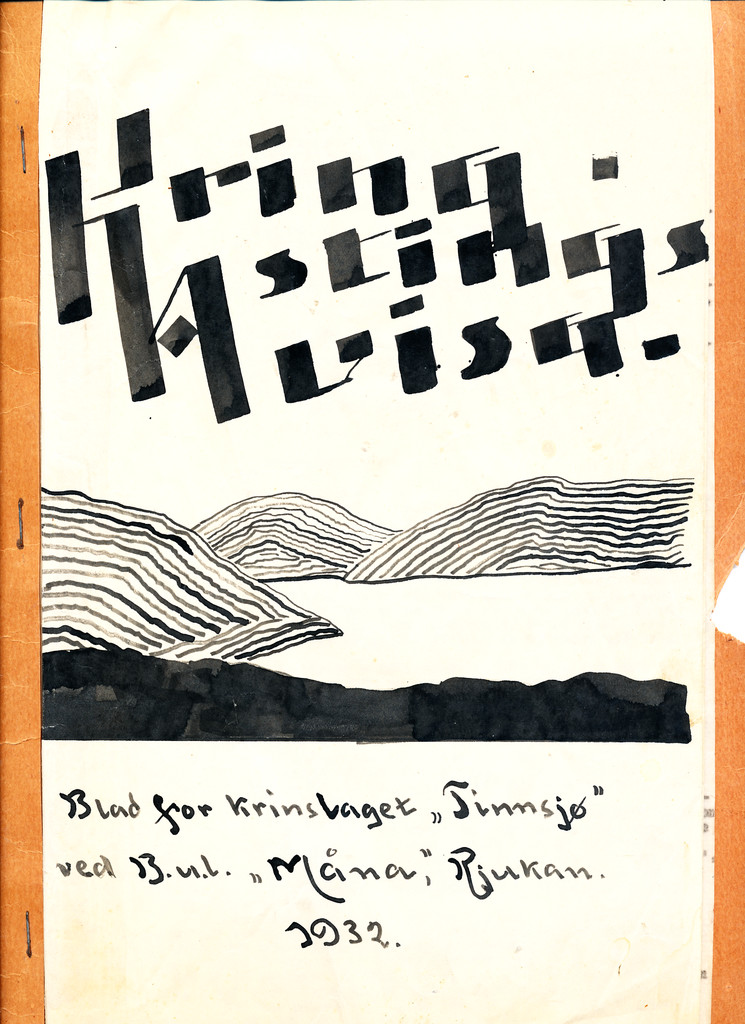 Kring-
kastings
Avisa.
Blad for krinslaget „Tinnsjø”
ved B.u.l. „Måna”, Rjukan.
1932.